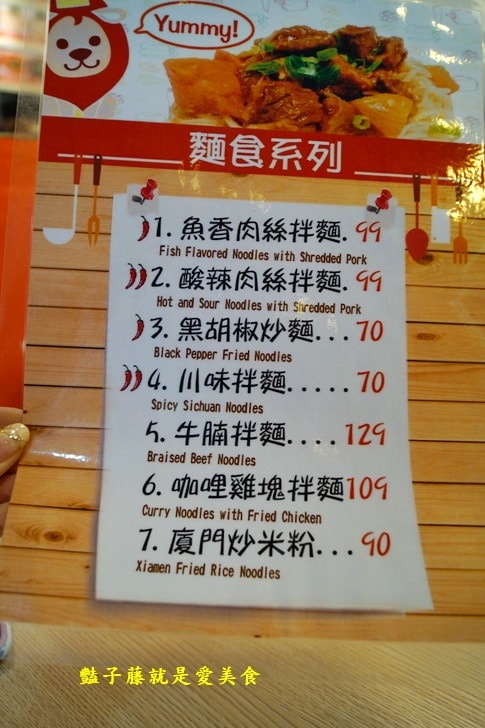 Yummy!
麵食系列
1. 魚香肉絲拌麵. 99
Fish Flavored Noodles with Shredded Pork
2. 酸辣肉絲拌麵. 99
Hot and Sour Noodles with Shredded Pork
3. 黑胡椒炒麵... 70
Black Pepper Fried Noodles
4. 川味拌麵..... 70
Spicy Sichuan Noodles
5. 牛腩拌麵.... 129
Braised Beef Noodles
6. 咖哩雞塊拌麵109
Curry Noodles with Fried Chicken
7. 廈門炒米粉... 90
Xiamen Fried Rice Noodles
豔子藤就是愛美食